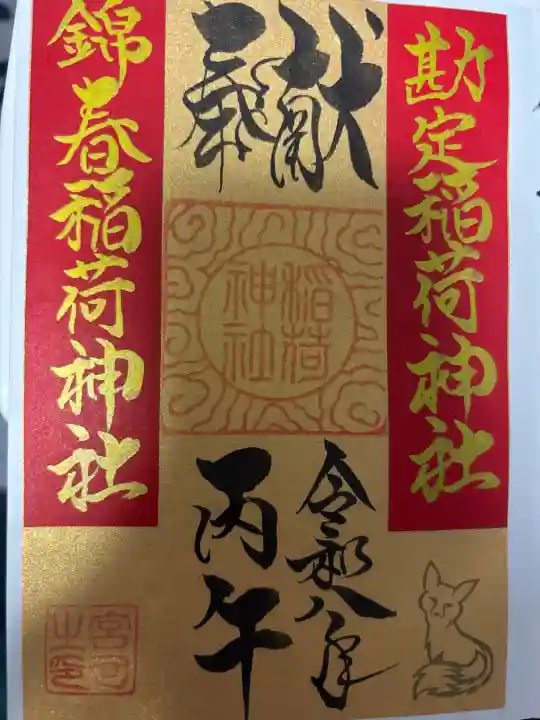 勘定稲荷神社
奉献
稲荷
神社
令和八年
丙午
錦春稲荷神社
宮司
之印